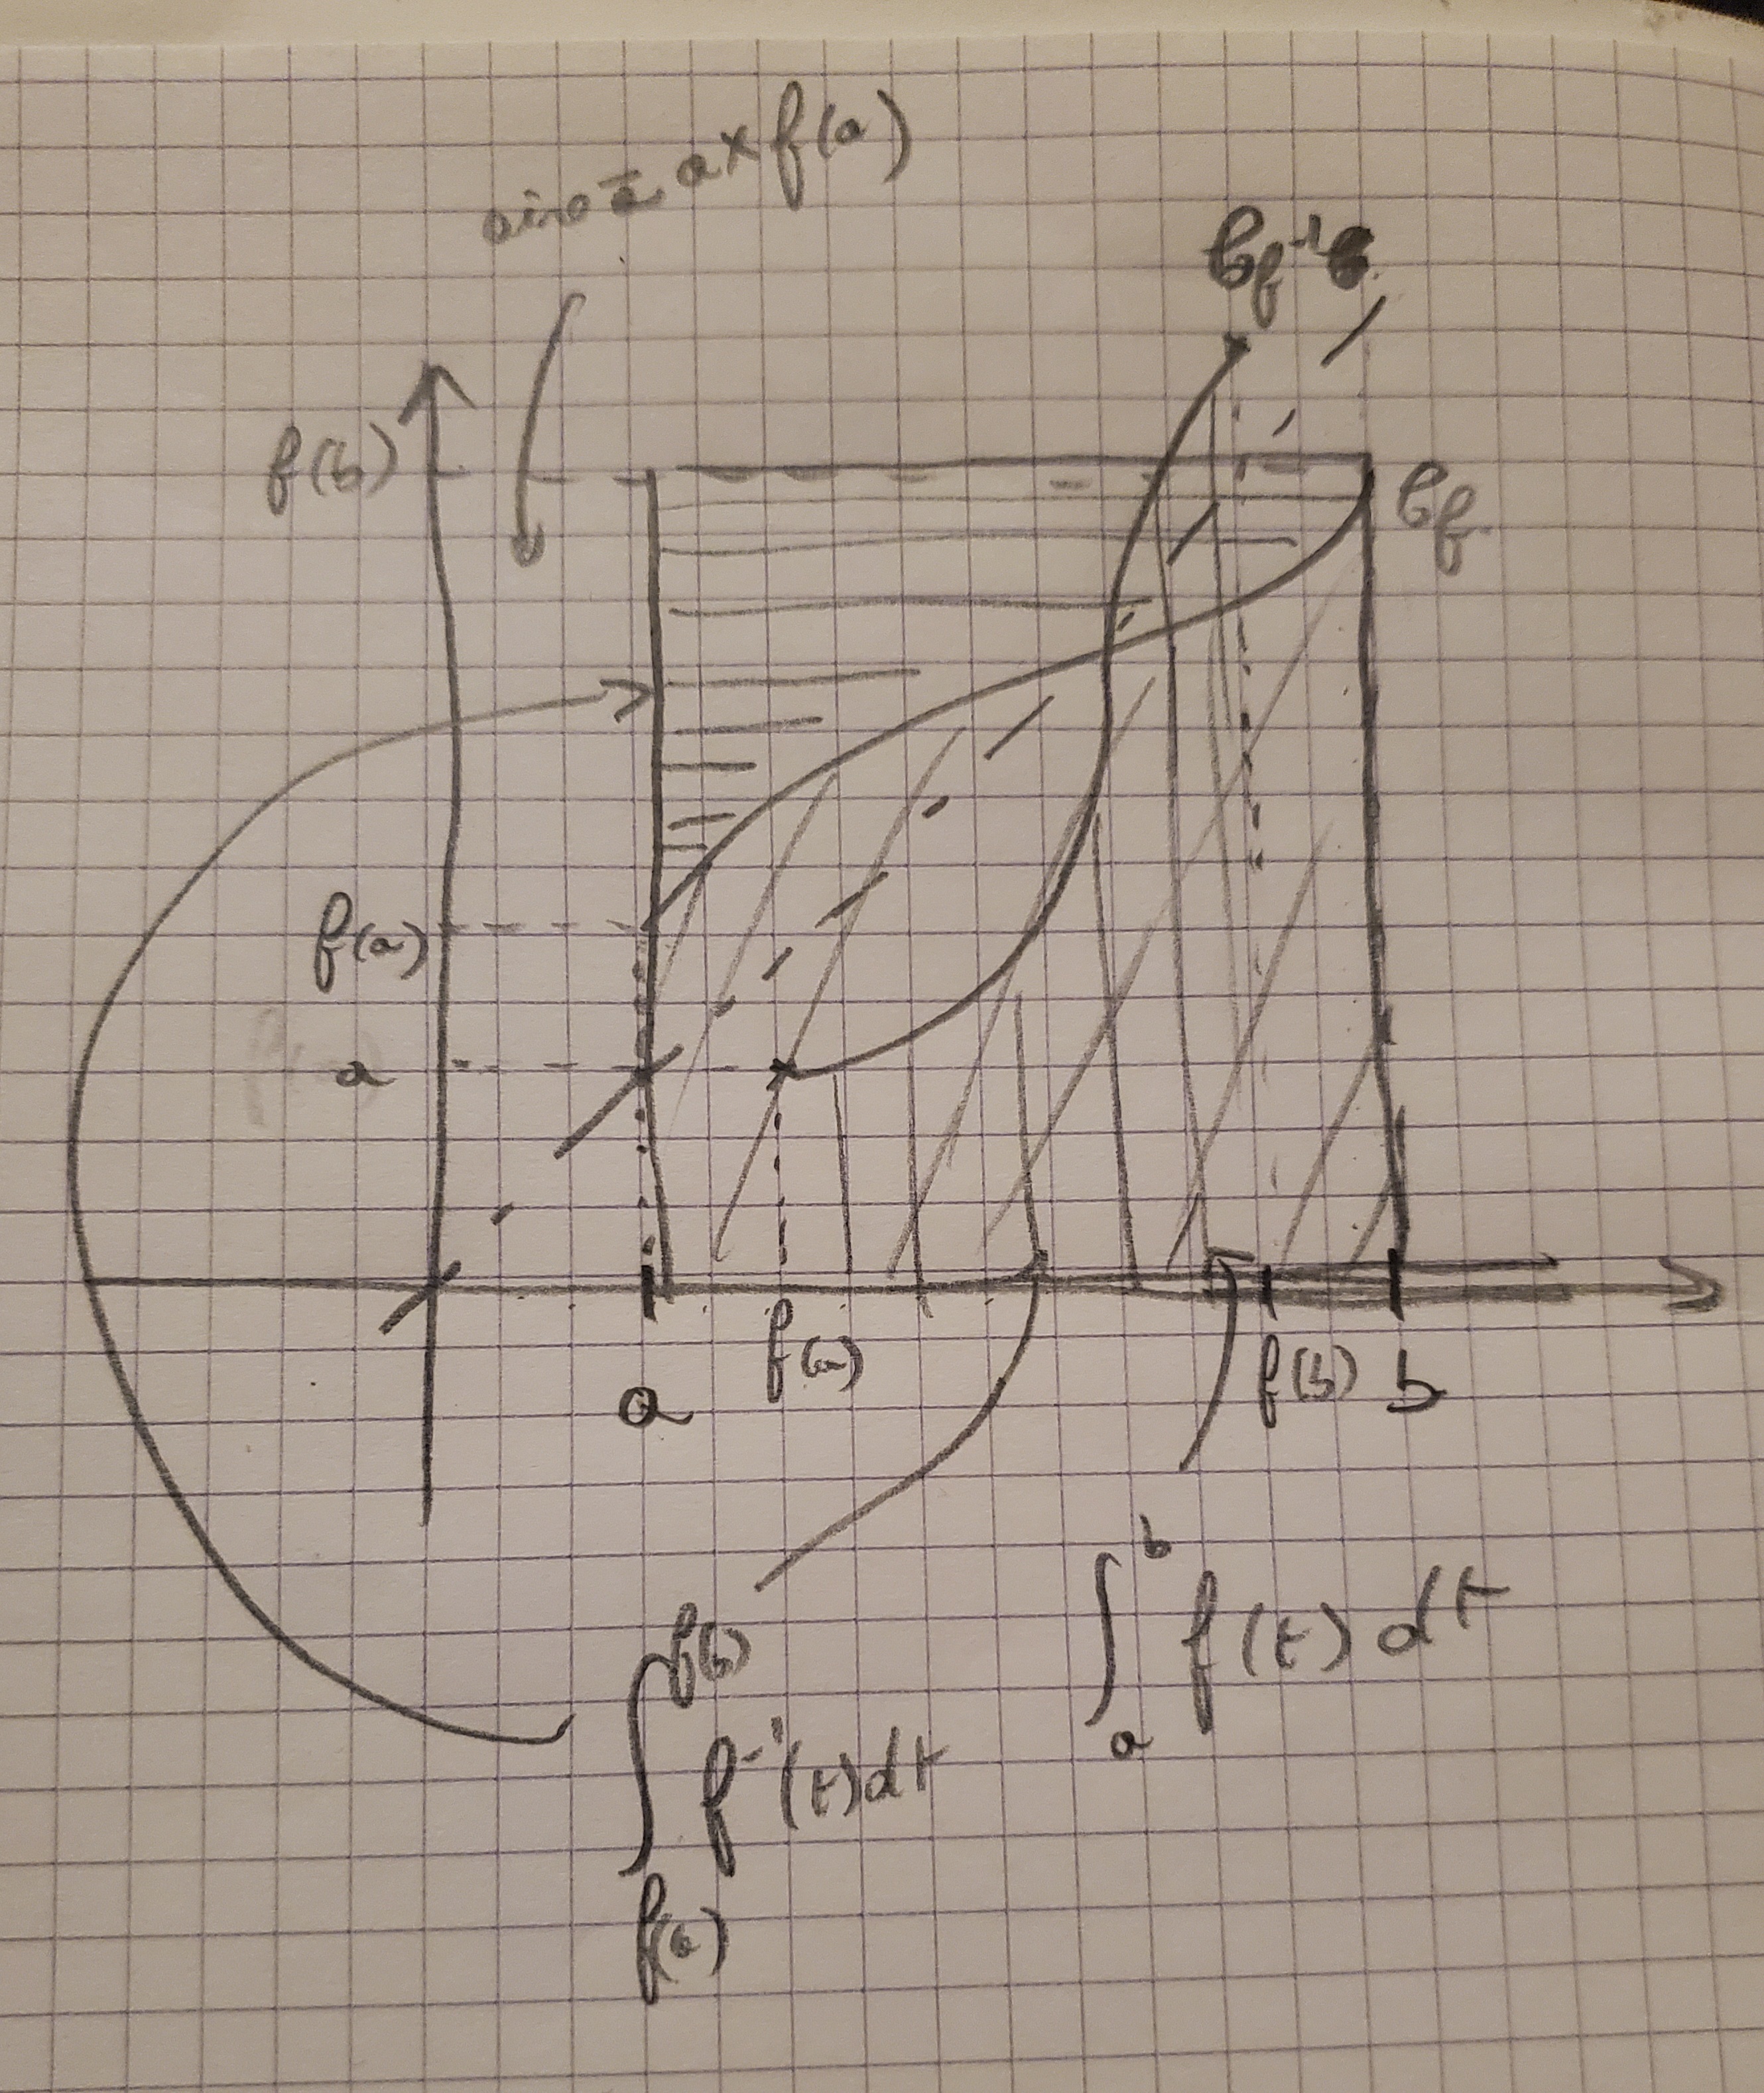 a × f(a)
C_f⁻¹
f(b)
C_f
f(a)
a
a f(a) f(b) b
∫_{f(a)}^{f(b)} f⁻¹(t)dt
∫_a^b f(t)dt